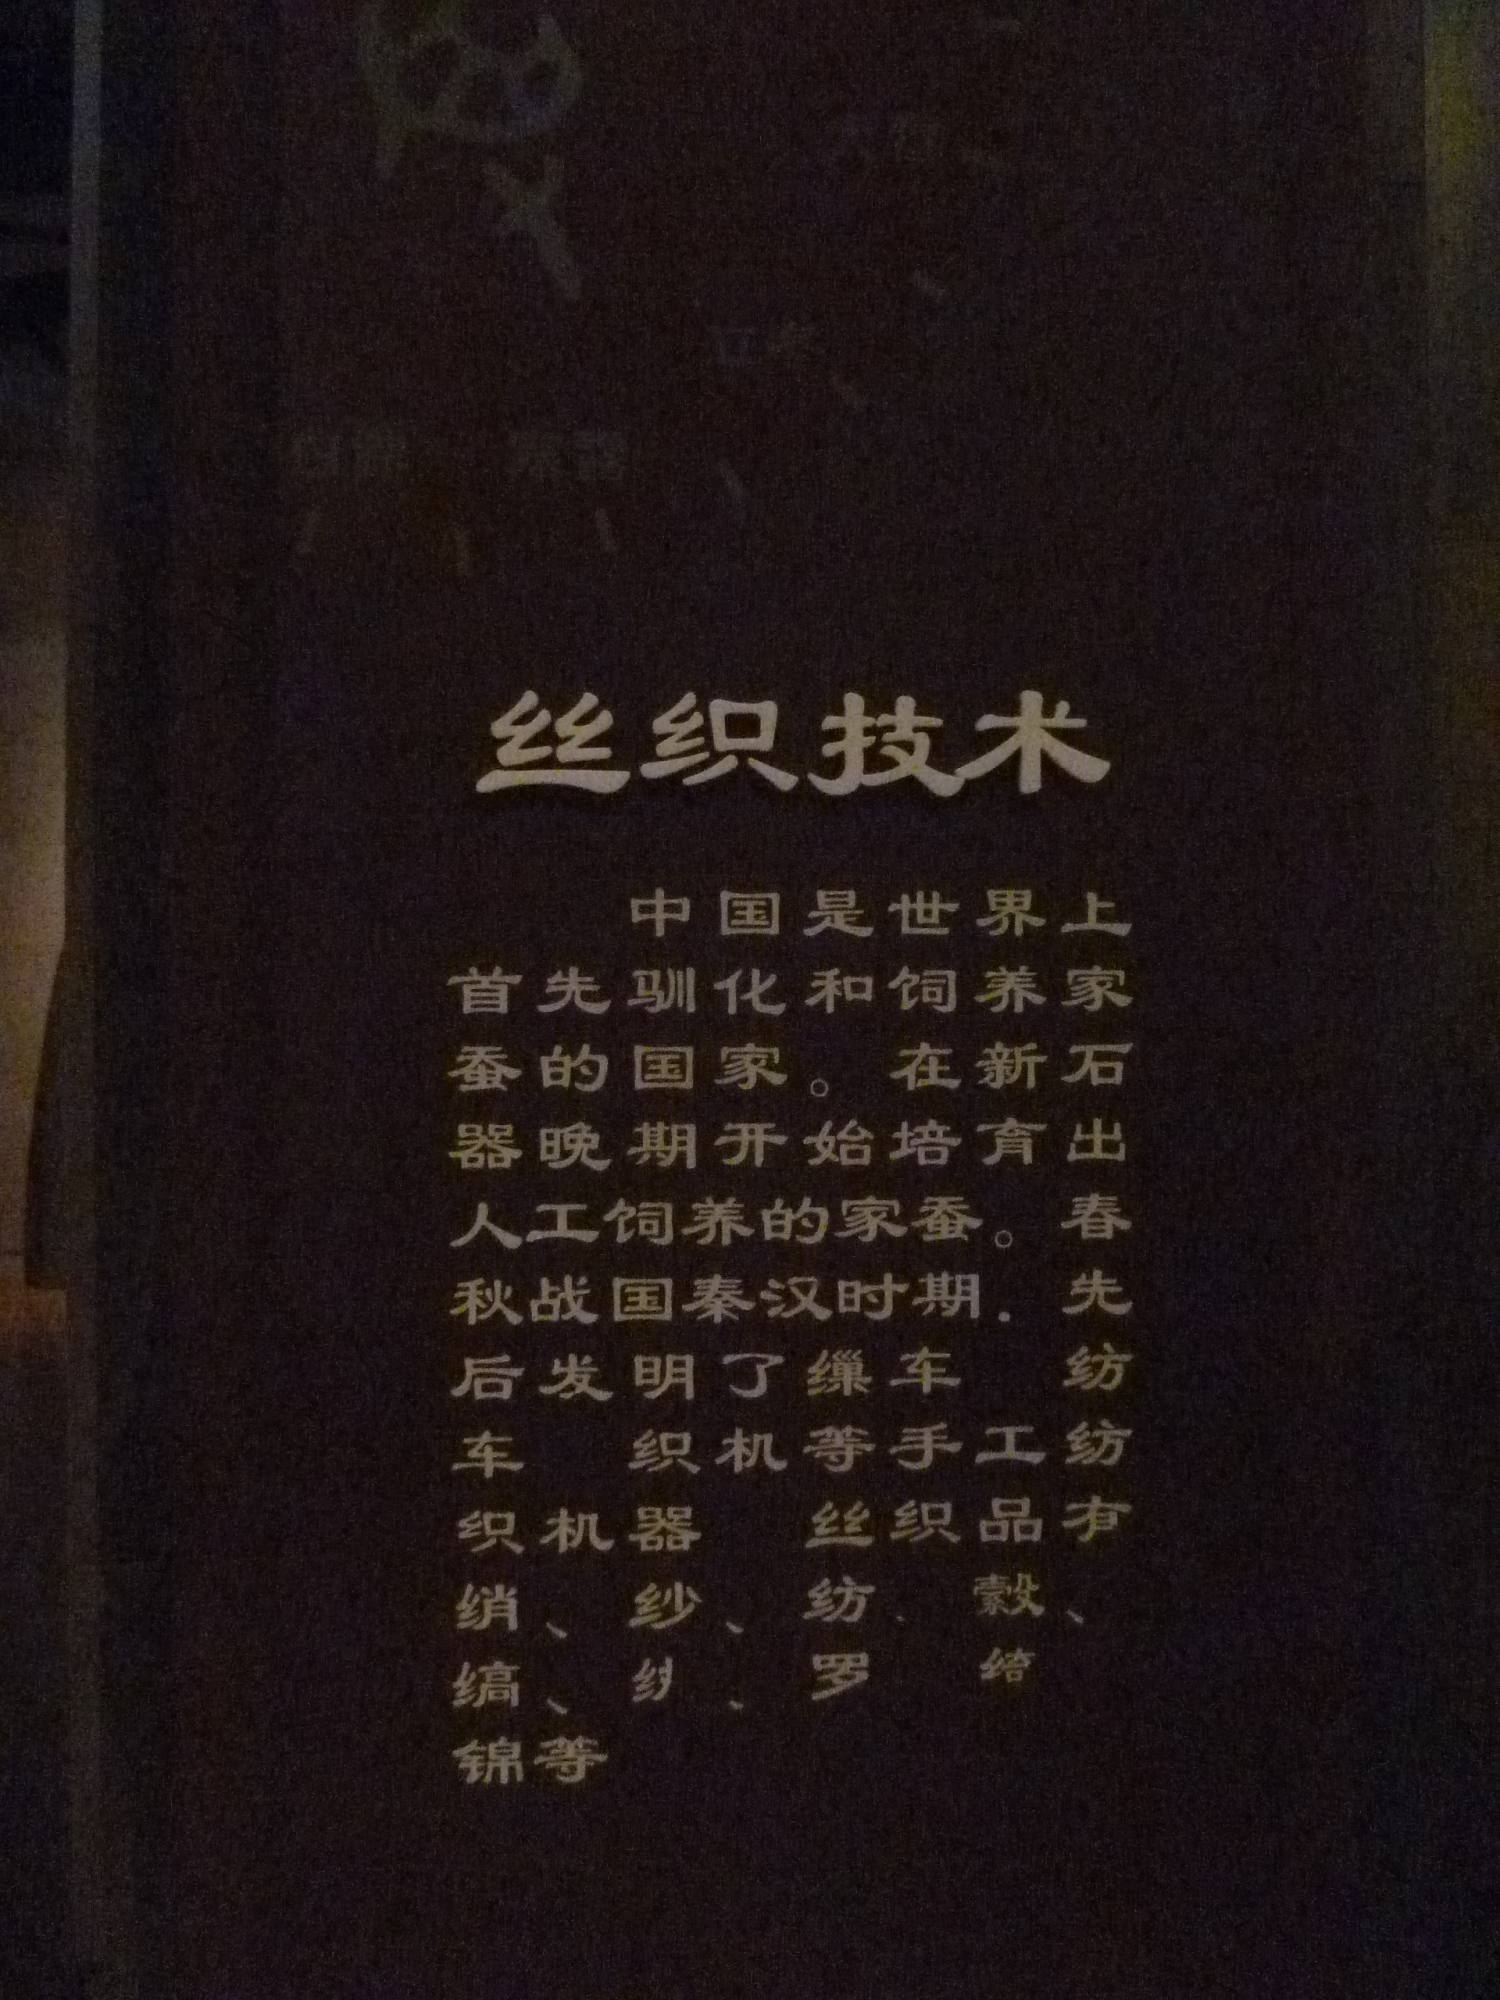 丝织技术
中国是世界上
首先驯化和饲养家
蚕的国家。在新石
器晚期开始培育出
人工饲养的家蚕。春
秋战国秦汉时期．先
后发明了缫车 纺
车 织机等手工纺
织机器 丝织品有
绡、纱、纺、縠、
缟、纟、罗 绮
锦等